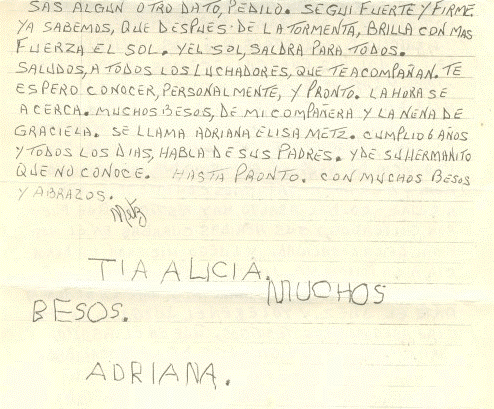 SAS ALGUN OTRO DATO, PEDILO. SEGUI FUERTE Y FIRME.
YA SABEMOS, QUE DESPUES DE LA TORMENTA, BRILLA CON MAS
FUERZA EL SOL. Y EL SOL, SALDRA PARA TODOS.
SALUDOS, A TODOS LOS LUCHADORES, QUE TE ACOMPAÑAN. TE
ESPERO CONOCER, PERSONALMENTE, Y PRONTO. LA HORA SE
ACERCA. MUCHOS BESOS, DE MI COMPAÑERA Y LA NENA DE
GRACIELA. SE LLAMA ADRIANA ELISA METZ. CUMPLIO 6 AÑOS
Y TODOS LOS DIAS, HABLA DE SUS PADRES. Y DE SU HERMANITO
QUE NO CONOCE. HASTA PRONTO. CON MUCHOS BESOS
Y ABRAZOS.
Metz
TIA ALICIA.
MUCHOS
BESOS.
ADRIANA.